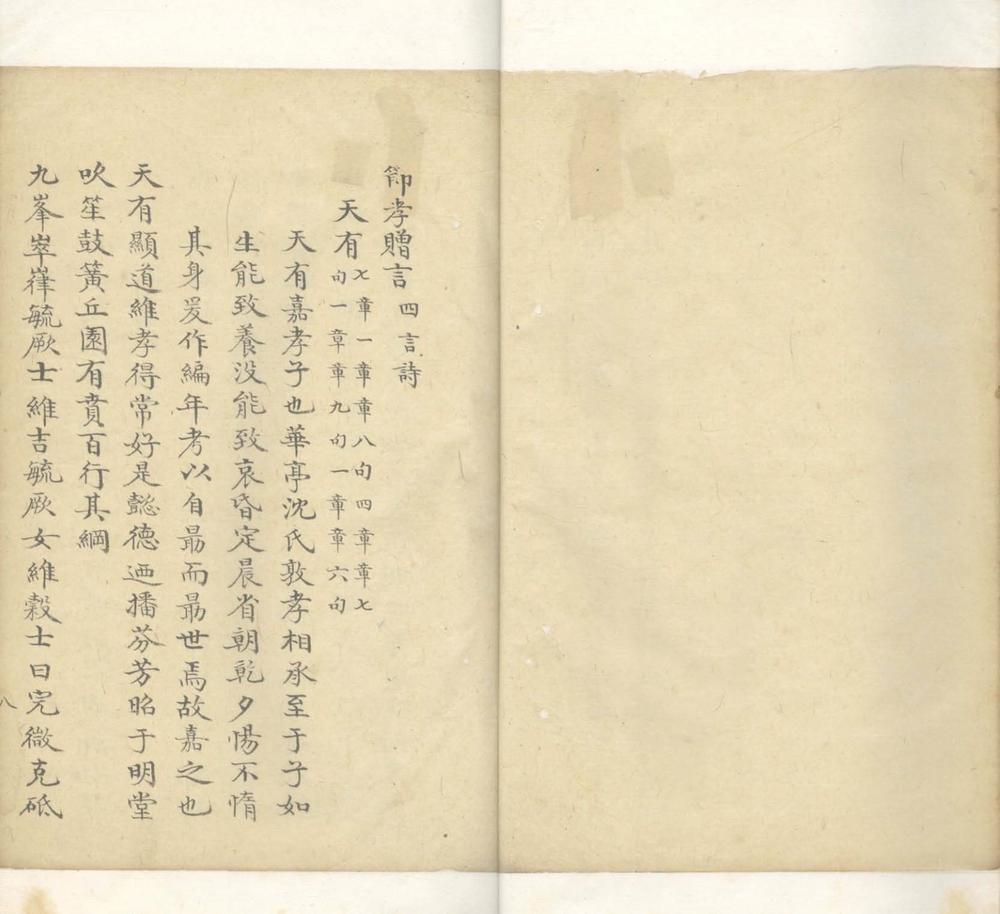 節孝贈言 四言詩
天有 七章一章章八句四章章七
句一章章九句一章章六句
天有嘉孝子也華亭沈氏敦孝相承至于子如
生能致養没能致哀昏定晨省朝乾夕惕不惰
其身爰作編年考以自朂而朂世焉故嘉之也
天有顯道維孝得常好是懿德迺播芬芳昭于明堂
吹笙鼓簧丘園有賁百行其綱
九峯崒嵂毓厥士維吉毓厥女維穀士曰完微克砥
八